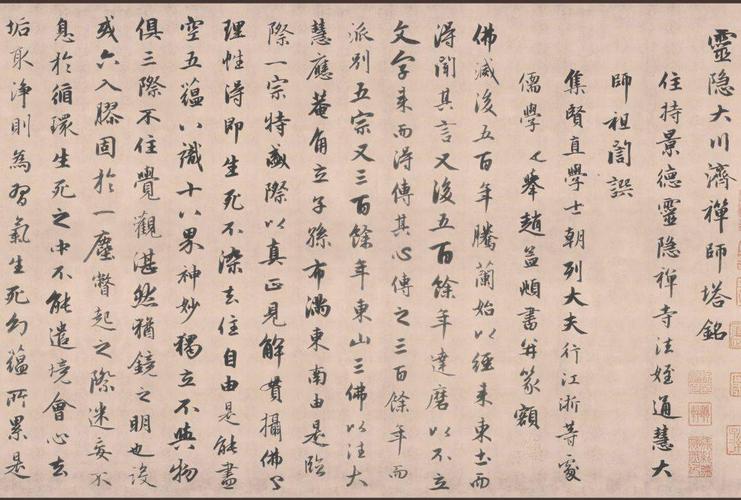 靈隐大川濟禪師塔銘
住持景德靈隐禪寺法姪通慧大
師祖誾譔
集賢直學士朝列大夫行江浙等處
儒學提舉趙孟頫書并篆額
佛滅後五百年騰蘭始以經来東土而
得聞其言又後五百餘年達磨以不立
文字来而得傳其心傳之三百餘年而
派别五宗又三百餘年東山三佛以法大
慧應菴角立子孫布滿東南由是臨
際一宗特盛際以真正見解貫攝佛了
理性得即生死不染去住自由是能盡
空五蘊八識十八界神妙獨立不與物
俱三際不住覺觀湛然猶鏡之明也设
或六入膠固於一塵瞥起之際迷妄不
息於循環生死之中不能遣境會心去
垢取淨則為習氣生死幻蘊所累是